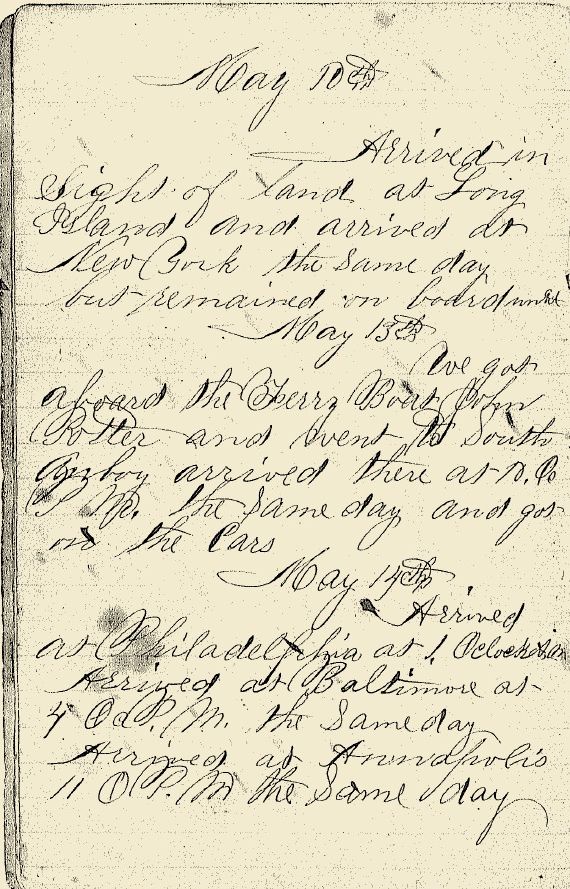 May 10th
Arrived in
Sight of land at Long
Island and arrived at
New York the same day
but remained on board until
May 13th
We got
aboard the Ferry Boat John
Potter and went to South
Amboy arrived there at
P. M. the same day and got
on the Cars
May 14th
Arrived
at Philadelphia at 1. Oclock
Arrived at Baltimore at
4 Oc P. M. the Same day
Arrived at Annapolis
11 O P. M the Same day